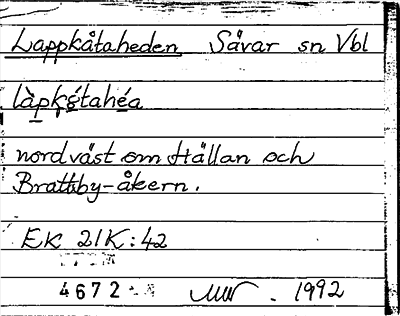 Lappkåtaheden, Sävar sn Vbl
làpkǻtahéa
nordväst om Hällan och
Brattsby-åkern.
EK 21K:42
4672
1992